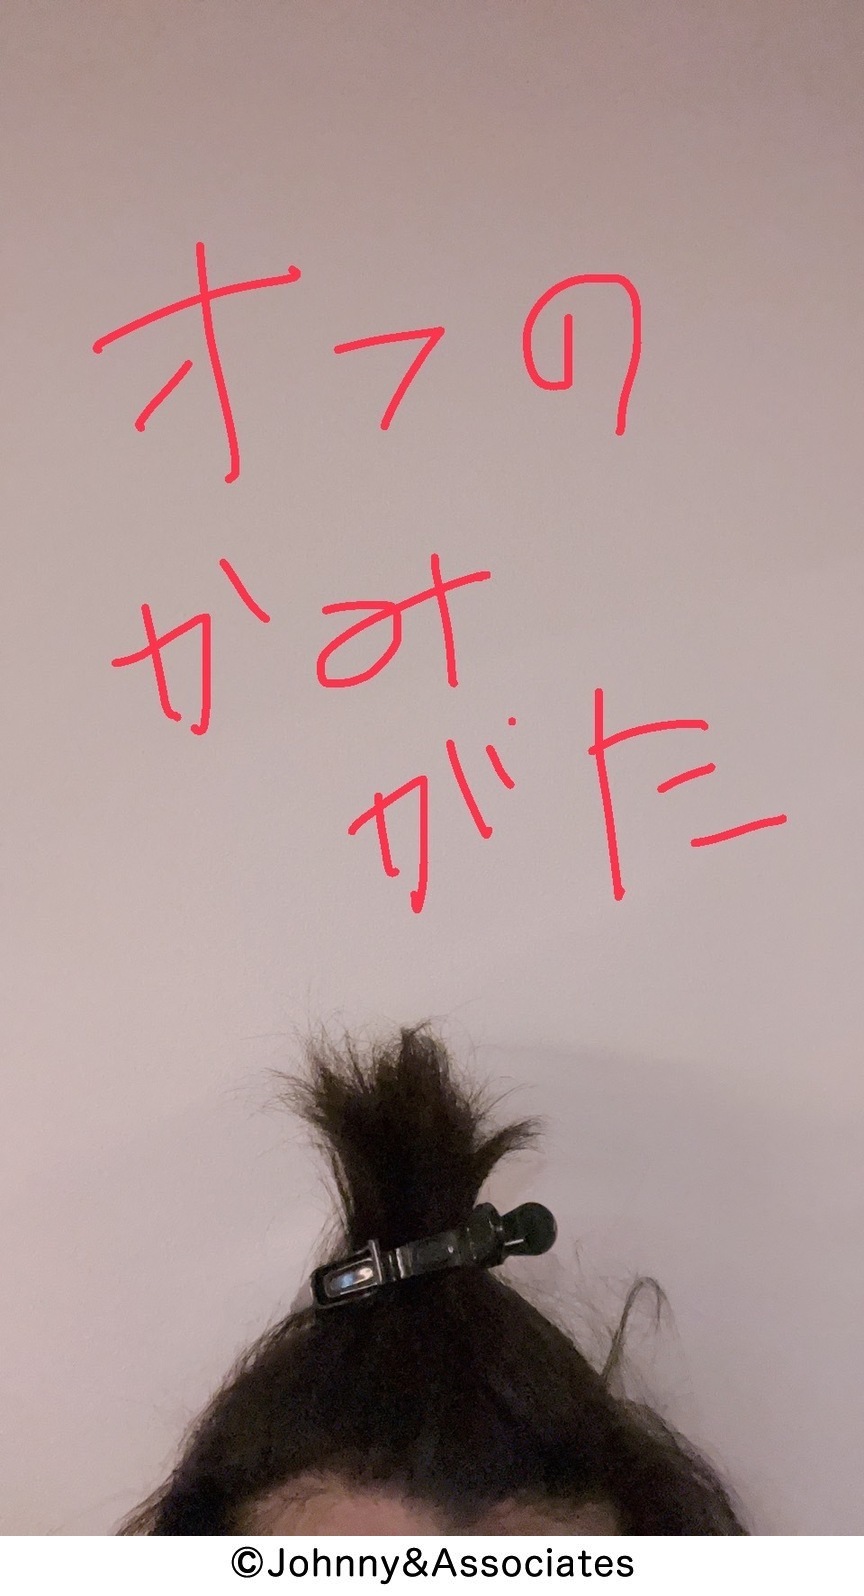 オフの
かみ
がた
©Johnny&Associates